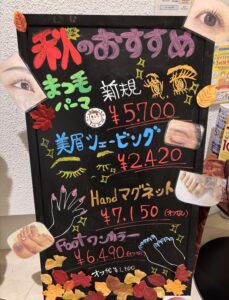 秋のおすすめ
まつ毛パーマ
新規
¥5,700
美眉シェービング
¥2,420
Handマグネット
¥7,150(オフなし)
Footワンカラー
¥6,490
オフ代¥1,100